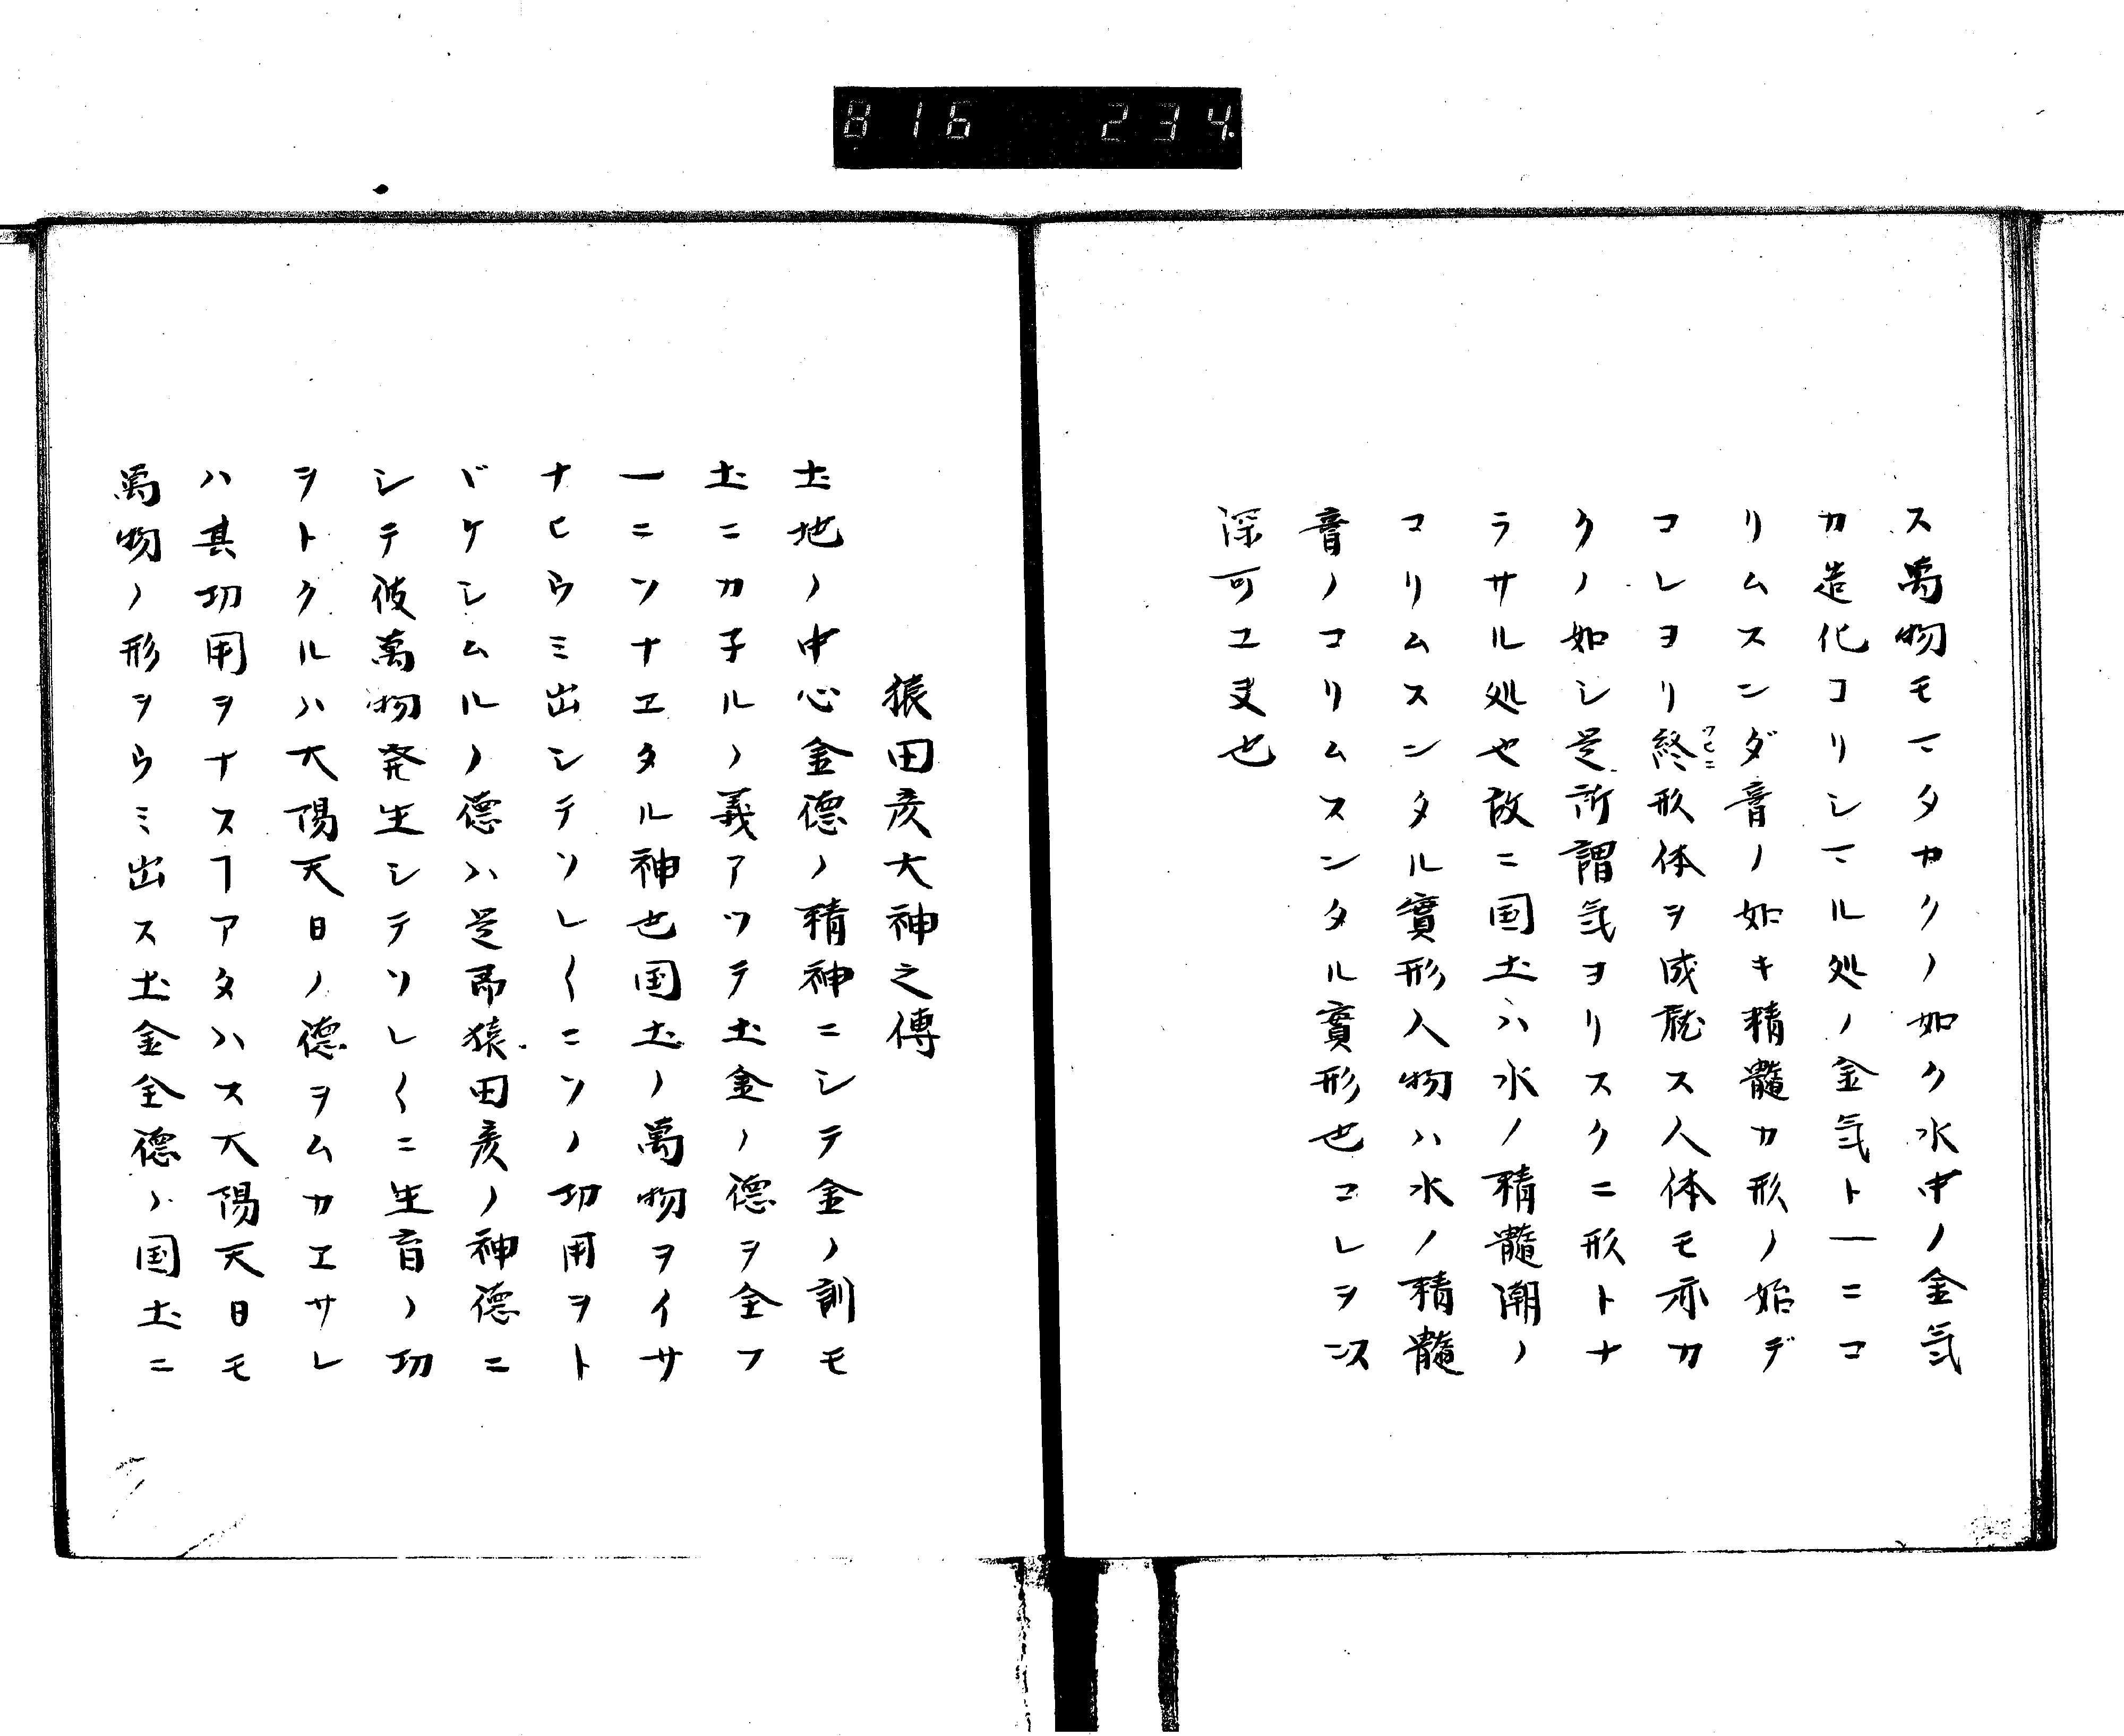 816 234.
ス萬物モマタカクノ如ク水中ノ金気
カ造化コリシマル処ノ金気ト一ニコ
リムスンダ膏ノ如キ精髓カ形ノ始デ
コレヨリ終ツヒニ形体ヲ成就ス人体モ亦カ
クノ如シ是所謂気ヨリスクニ形トナ
ラサル処也故ニ国土ハ水ノ精髓潮ノ
コリムスンタル實形人物ハ水ノ精髓
膏ノコリムスンタル實形也コレヲ以
深可工夫也
猿田彦大神之傳
土地ノ中心金德ノ精神ニシテ金ノ訓モ
土ニカ子ルノ義アツテ土金ノ德ヲ全フ
一ニソナエタル神也国土ノ萬物ヲイサ
ナヒウミ出シテソレ〱ニソノ功用ヲト
ゲケシムルノ德ハ是即猿田彦ノ神德ニ
シテ彼萬物発生シテソレ〱ニ生育ノ功
ヲトクルハ大陽天日ノ德ヲムカエサレ
ハ其功用ヲナスヿアタハス大陽天日モ
萬物ノ形ヲウミ出ス土金全德ノ国土ニ